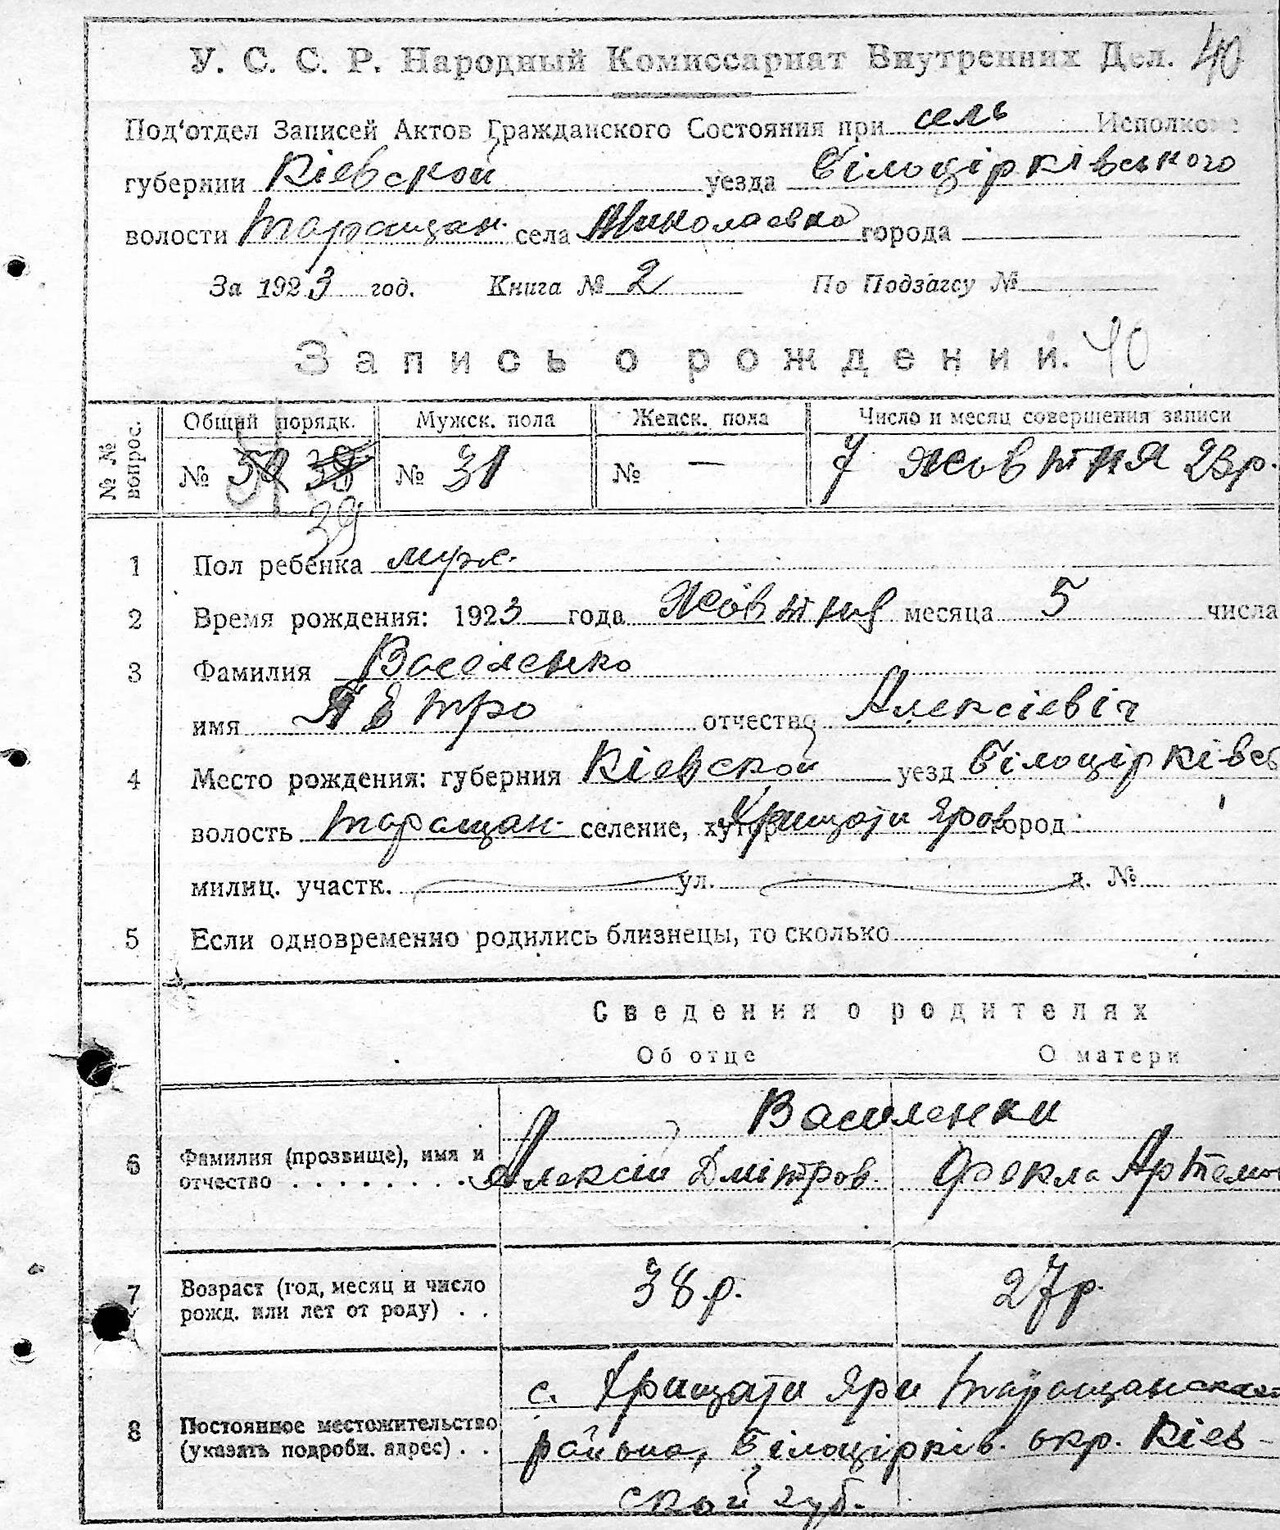 У. С. С. Р. Народный Комиссариат Внутренних Дел. 40
Под'отдел Записей Актов Гражданского Состояния при сель Исполкоме
губернии Кіевской уезда Білоцірківського
волости Таращан. села Николаевка города
За 1923 год. Книга № 2 По Подзагсу №
Запись о рождении. 40
№ № вопрос.
Общий порядк. Мужск. пола Женск. пола Число и месяц совершения записи
№ 39 № 31 № — 7 жовтня 23 р.
1 Пол ребенка муж.
2 Время рождения: 1923 года Жовтня месяца 5 числа
3 Фамилия Василенко
имя Петро отчество Алексіевіч
4 Место рождения: губерния Кіевской уезд Білоцірківсь
волость Таращан. селение, хутор Хрищати Яри город
милиц. участк. ул. д. №
5 Если одновременно родились близнецы, то сколько
Сведения о родителях
Об отце О матери
Василенки
6 Фамилия (прозвище), имя и
отчество . . . . . . . . Алексій Дмітров. Фекла Артемов
7 Возраст (год, месяц и число
рожд. или лет от роду) . . 38 р. 27 р.
с. Хрищати Яри Таращанского
8 Постоянное местожительство
(указать подробн. адрес) . . района, Білоцірків. окр. Кіев-
ской губ.